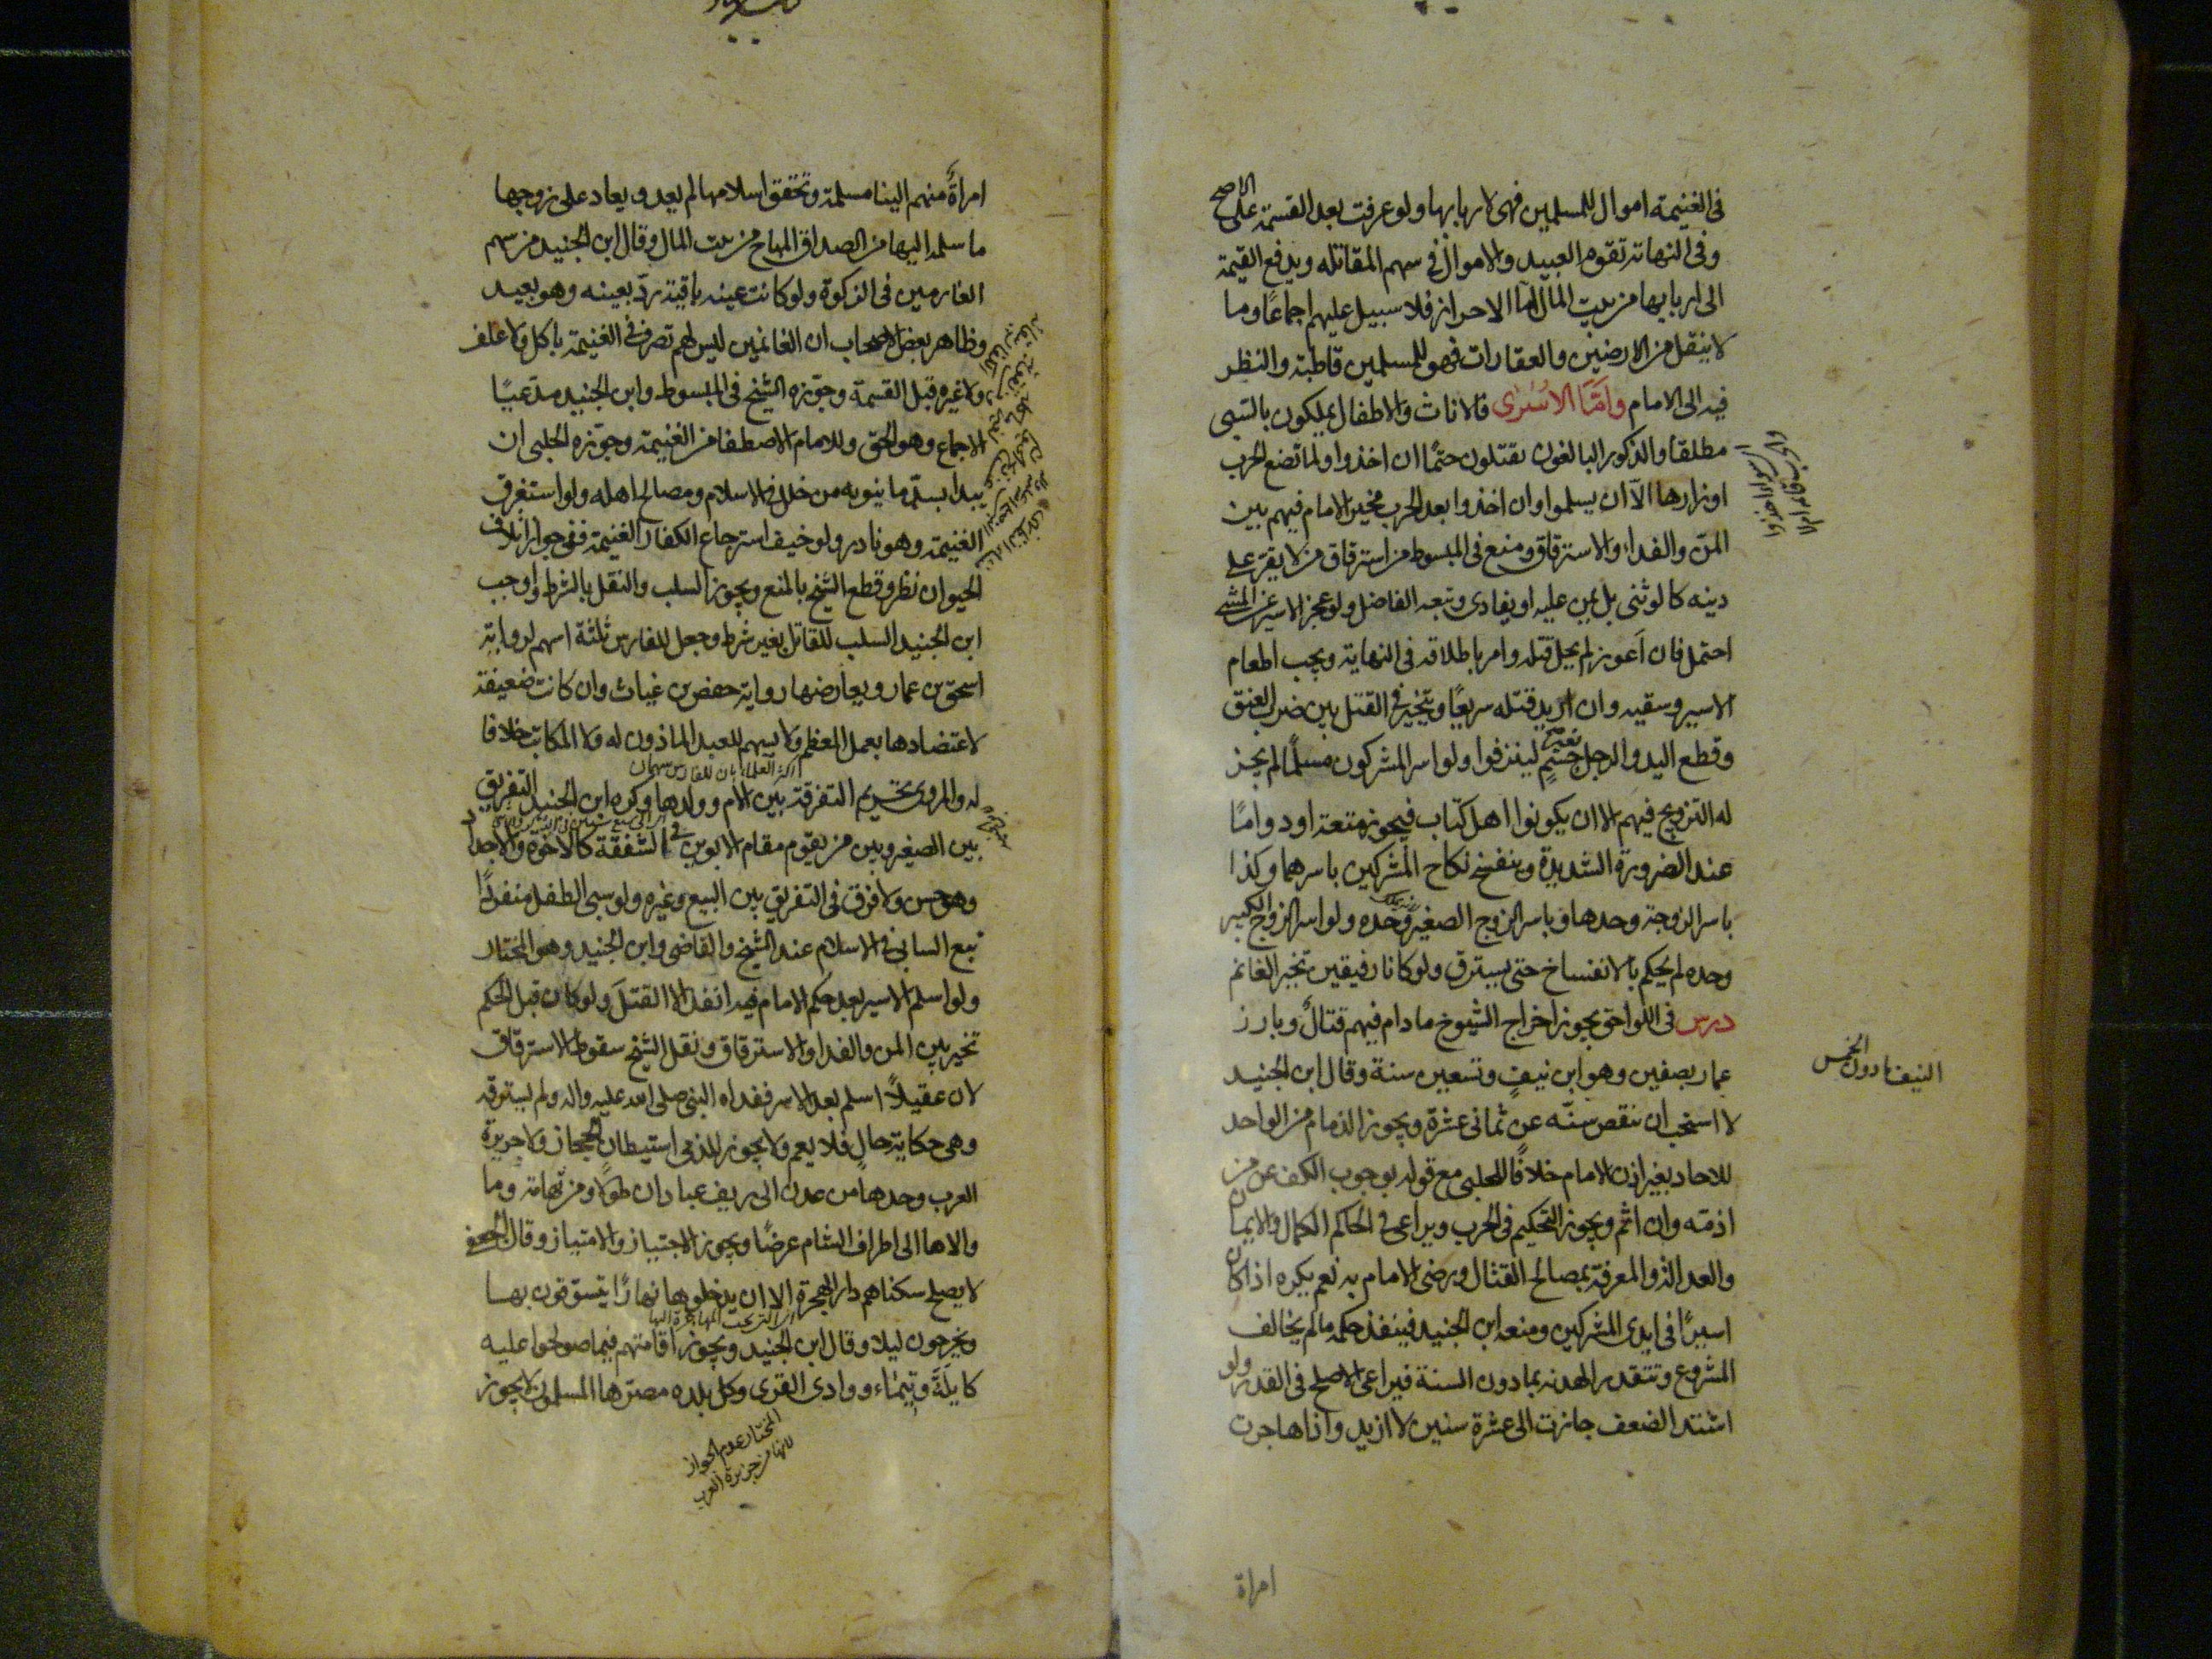 فى الغنيمة اموال للمسلمين فهى لاربابها ولو عرفت بعد القسمة على الاصح
وفى النهاية تقوم العبيد والاموال فى سهم المقاتله ويدفع القيمة
الى اربابها من بيت المال اما الاحرار فلا سبيل عليهم اجماعًا وما
لا ينقل من الارضين والعقارات فهو للمسلمين قاطبة والنظر
فيه الى الامام وامَّا الاسْرٰى فالاناث والاطفال يملكون بالسّبى
مطلقا والذكور البالغون يقتلون حتمًا ان اخذوا ولما تضع الحرب
اوزارها الّا ان يسلموا وان اخذوا بعد الحرب تخير الامام فيهم بين
المنّ والفداء والاسترقاق ومنع فى المبسوط من استرقاق من لا يقرّ على
دينه كالوثنى بل يمن عليه او يفادى وتبعه الفاضل ولو عجز الاسير عن المشى
احتمل فان اَعوز لم يحل قتله وامر باطلاقه فى النهاية ويجب اطعام
الاسير وسقيه وان اريد قتله سريعًا ويتخير فى القتل بين ضرب العنق
وقطع اليد والرجل بغير حَسْمٍ لينزفوا ولو اسر المشركون مسلمًا لم يجز
له التزويج فيهم الا ان يكونوا اهل كتاب فيجوز متعة او دوامًا
عند الضرورة الشديدة وينفسخ نكاح المشركين باسرهما وكذا
باسر الزوجة وحدها وباسر الزوج الصغير وحده ولو اسر الزوج الكبير
وحده لم يحكم بالانفساخ حتى يسترق ولو كانا رقيقين تخير الغانم
درس فى اللواحق يجوز اخراج الشيوخ ما دام فيهم قتالٌ وبارز
عمار بصفين وهو ابن نيفٍ وتسعين سنة وقال ابن الجنيد
لا استحب ان ينقص سنّه عن ثمانى عشرة ويجوز الذمام من الواحد
للاحاد بغير اذن الامام خلافًا للحلبى مع قوله بوجوب الكف عن من
اذمّه وان اثم ويجوز التحكيم فى الحرب ويراعى فى الحاكم الكمال والايمان
والعدالة والمعرفة بمصالح القتال ورضى الامام به نعم يكره اذا كان
اسيرًا فى ايدى المشركين ومنعه ابن الجنيد فينفذ حكمه ما لم يخالف
المشروع وتتقدر الهدنه بما دون السنة فيراعى الاصلح فى القدر ولو
اشتد الضعف جازت الى عشرة سنين لا ازيد واذا هاجرت
النيف ما دون الخمس
امراة
امراةٌ منهم الينا مسلمة وتحقق اسلامها لم يعد ويعاد على زوجها
ما سلمه اليها من الصداق المباح من بيت المال وقال ابن الجنيد من سهم
الغارمين فى الزكوة ولو كانت عينه باقية ردّ بعينه وهو بعيد
وظاهر بعض الاصحاب ان الغانمين ليس لهم تصرف فى الغنيمة باكل ولا علف
ولا غيره قبل القسمة وجوّزه الشيخ فى المبسوط وابن الجنيد مدّعيًا
الاجماع وهو الحق وللامام الاصطفا من الغنيمة وجوّزه الحلبى ان
يبدا بسدّ ما ينوبه من خلل فى الاسلام ومصالح اهله ولو استغرق
الغنيمة وهو نادر ولو خيف استرجاع الكفار الغنيمة ففى جواز اتلاف
الحيوان نظر وقطع الشيخ بالمنع ويجوز السلب والنفل بالشرط واوجب
ابن الجنيد السلب للقاتل بغير شرط وجعل للفارس ثلثة اسهم لرواية
اسحق بن عمار ويعارضها رواية حفص بن غياث وان كانت ضعيفة
لاعتضادها بعمل المعظم ولا يسهم للعبد الماذون له ولا المكاتب خلافا
اكثر العلما بان للفارس سهمان
له والمروى تحريم التفرقة بين الام وولدها وكره ابن الجنيد التفريق
بين الصغير وبين من يقوم مقام الابوين فى الشفقة كالاخوة والاجداد
وهو حسن ولا فرق فى التفريق بين البيع وغيره ولو سبى الطفل منفردًا
تبع السابى فى الاسلام عند الشيخ والقاضى وابن الجنيد وهو المختار
ولو اسلم الاسير بعد حكم الامام فيه انفذ الا القتلَ ولو كان قبل الحكم
تخير بين المن والفدا والاسترقاق ونقل الشيخ سقوط الاسترقاق
لان عقيلًا اسلم بعد الاسر ففداه النبى صلى الله عليه واله ولم يسترقه
وهى حكاية حالٍ فلا يعم ولا يجوز للذمى استيطان الحجاز ولا جزيرة
العرب وحدها من عدن الى ريف عبادان طولًا ومن تهامة وما
والاها الى اطراف الشام عرضًا ويجوز الاجتياز والامتياز وقال الجعفى
لا يصلح سكناهم دار الهجرة الا ان يدخلوها نهارًا يتسوقون بها
ويخرجون ليلا وقال ابن الجنيد ويجوز اقامتهم فيما صولحوا عليه
كايلَةَ وتيمَاء ووادى القرى وكل بلده مصّرها المسلمون لا يجوز
المختار عدم الجواز
لانها من جزيرة العرب